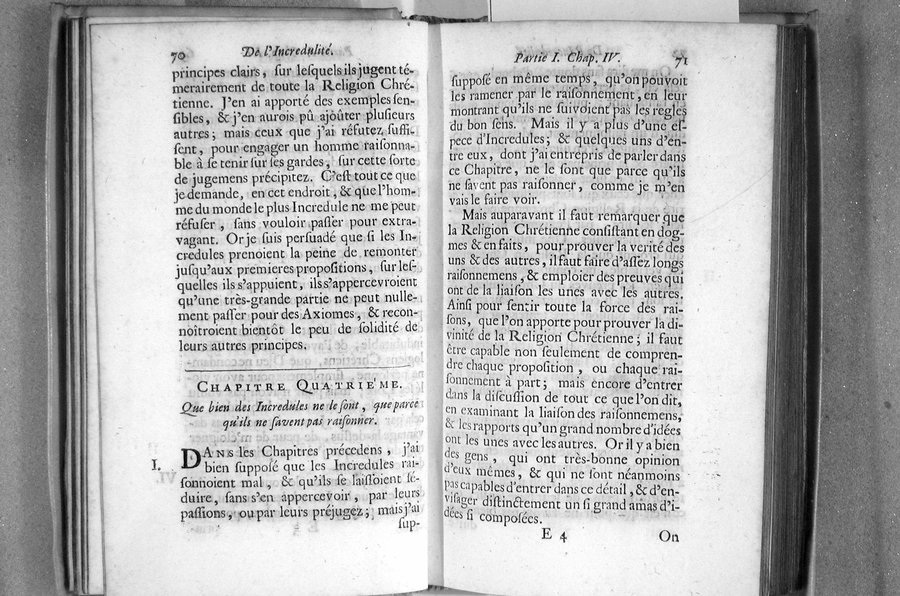 70 De l'Incredulité.
principes clairs, sur lesquels ils jugent té-
merairement de toute la Religion Chré-
tienne. J'en ai apporté des exemples sen-
sibles, & j'en aurois pû ajoûter plusieurs
autres; mais ceux que j'ai réfutez suffi-
sent, pour engager un homme raisonna-
ble à se tenir sur ses gardes, sur cette sorte
de jugemens précipitez. C'est tout ce que
je demande, en cet endroit, & que l'hom-
me du monde le plus Incredule ne me peut
réfuser, sans vouloir passer pour extra-
vagant. Or je suis persuadé que si les In-
credules prenoient la peine de remonter
jusqu'aux premieres propositions, sur les-
quelles ils s'appuient, ils s'appercevroient
qu'une très-grande partie ne peut nulle-
ment passer pour des Axiomes, & recon-
noîtroient bientôt le peu de solidité de
leurs autres principes.
CHAPITRE QUATRIE'ME.
Que bien des Incredules ne le sont, que parce
qu'ils ne savent pas raisonner.
I. DANS les Chapitres précedens, j'ai
bien supposé que les Incredules rai-
sonnoient mal, & qu'ils se laissoient sé-
duire, sans s'en appercevoir, par leurs
passions, ou par leurs préjugez; mais j'ai
sup-
Partie I. Chap. IV. 71
supposé en même temps, qu'on pouvoit
les ramener par le raisonnement, en leur
montrant qu'ils ne suivoient pas les regles
du bon sens. Mais il y a plus d'une es-
pece d'Incredules; & quelques uns d'en-
tre eux, dont j'ai entrepris de parler dans
ce Chapitre, ne le sont que parce qu'ils
ne savent pas raisonner, comme je m'en
vais le faire voir.
Mais auparavant il faut remarquer que
la Religion Chrétienne consistant en dog-
mes & en faits, pour prouver la verité des
uns & des autres, il faut faire d'assez longs
raisonnemens, & emploier des preuves qui
ont de la liaison les unes avec les autres.
Ainsi pour sentir toute la force des rai-
sons, que l'on apporte pour prouver la di-
vinité de la Religion Chrétienne; il faut
être capable non seulement de compren-
dre chaque proposition, ou chaque rai-
sonnement à part; mais encore d'entrer
dans la discussion de tout ce que l'on dit,
en examinant la liaison des raisonnemens,
& les rapports qu'un grand nombre d'idées
ont les unes avec les autres. Or il y a bien
des gens, qui ont très-bonne opinion
d'eux mêmes, & qui ne sont néanmoins
pas capables d'entrer dans ce détail, & d'en-
visager distinctement un si grand amas d'i-
dées si composées.
E 4 On